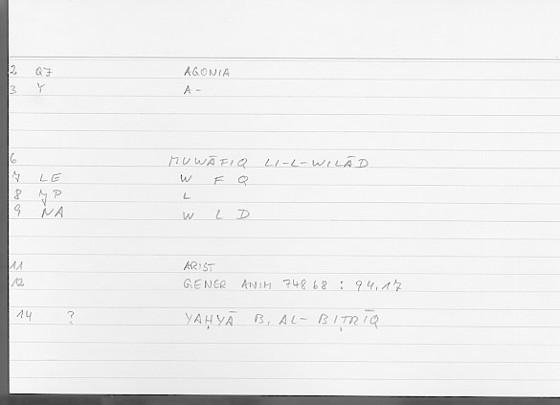 2 QJ AGONIA
3 Y A-
6 MUWĀFIQ LI-L-WILĀD
7 LE W F Q
8 JP L
9 NA W L D
11 ARIST
12 GENER ANIM 748 b 8 : 94,17
14 ? YAḤYĀ B. AL-BIṬRĪQ